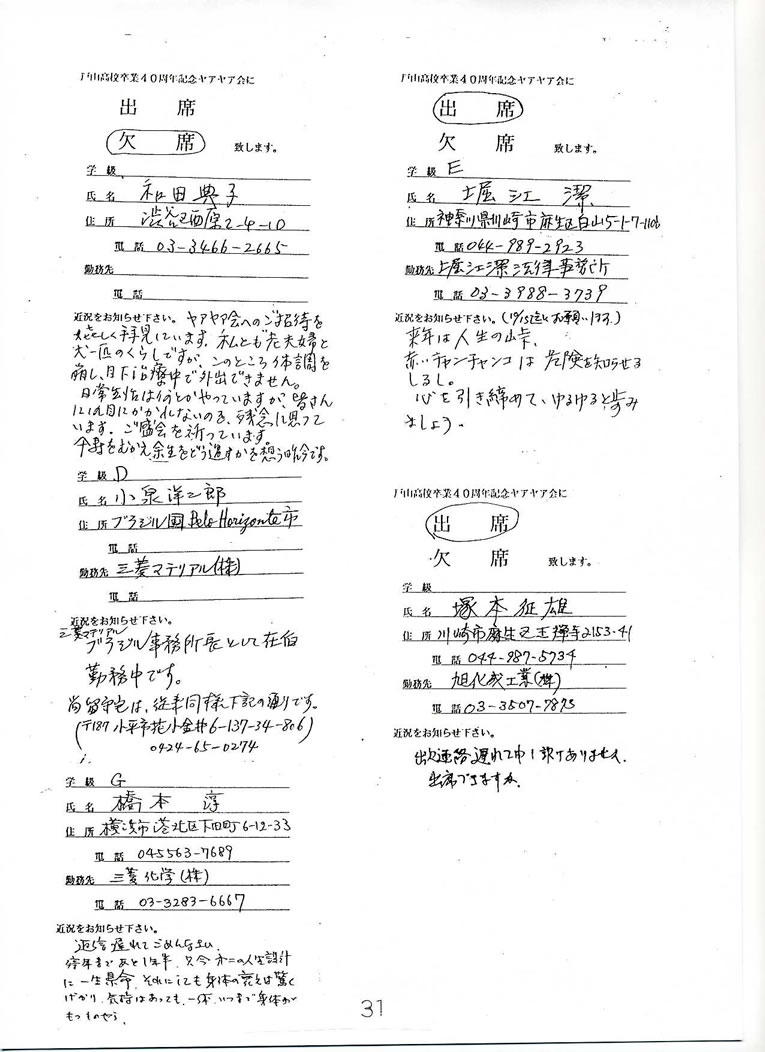 戸山高校卒業40周年記念ヤアヤア会に
出 席
欠 席 致します。
学 級
氏 名 和田典子
住 所 渋谷区西原2-4-10
電 話 03-3466-2665
勤務先
電 話
近況をお知らせ下さい。 ヤアヤア会へのご招待を
嬉しく拝見しています。私ども老夫婦と
犬一匹のくらしですが、このところ体調を
崩し、目下治療中で外出できません。
日常生活は何とかやっていますが、皆さん
にお目にかかれないのを、残念に思って
います。ご盛会を祈っています。
をむかえ余生をどう過すかを想う昨今です。
学 級 D
氏 名 小泉洋二郎
住 所 ブラジル国 Belo Horizonte市
電 話
勤務先 三菱マテリアル(株)
電 話
近況をお知らせ下さい。
三菱マテリアル
ブラジル事務所長として在伯
勤務中です。
尚留守宅は、従来同様下記の通りです。
(〒187 小平市花小金井6-137-34-806)
0424-65-0274
学 級 G
氏 名 橋本 淳
住 所 横浜市港北区下田町6-12-33
電 話 045563-7689
勤務先 三菱化学(株)
電 話 03-3283-6667
近況をお知らせ下さい。
返信遅れてごめんなさい。
停年まであと1年半、只今第二の人生設計
に一生県命、それにしても身体の衰えは驚く
ばかり、気持はあっても、一体、いつまで身体が
もつものやら。
戸山高校卒業40周年記念ヤアヤア会に
出 席
欠 席 致します。
学 級 E
氏 名 堀江 潔
住 所 神奈川県川崎市麻生区白山5-1-7-1106
電 話 044-989-2923
勤務先 堀江潔法律事務所
電 話 03-3988-3739
近況をお知らせ下さい。(10/15迄にお願いします。)
来年は人生の山峠。
赤いチャンチャンコは危険を知らせる
しるし。
心を引き締めて、ゆるゆると歩み
ましょう。
戸山高校卒業40周年記念ヤアヤア会に
出 席
欠 席 致します。
学 級
氏 名 塚本征雄
住 所 川崎市麻生区王禅寺2153-41
電 話 044-987-5734
勤務先 旭化成工業(株)
電 話 03-3507-7875
近況をお知らせ下さい。
出欠連絡遅れて申し訳けありません。
出席できますか。
31